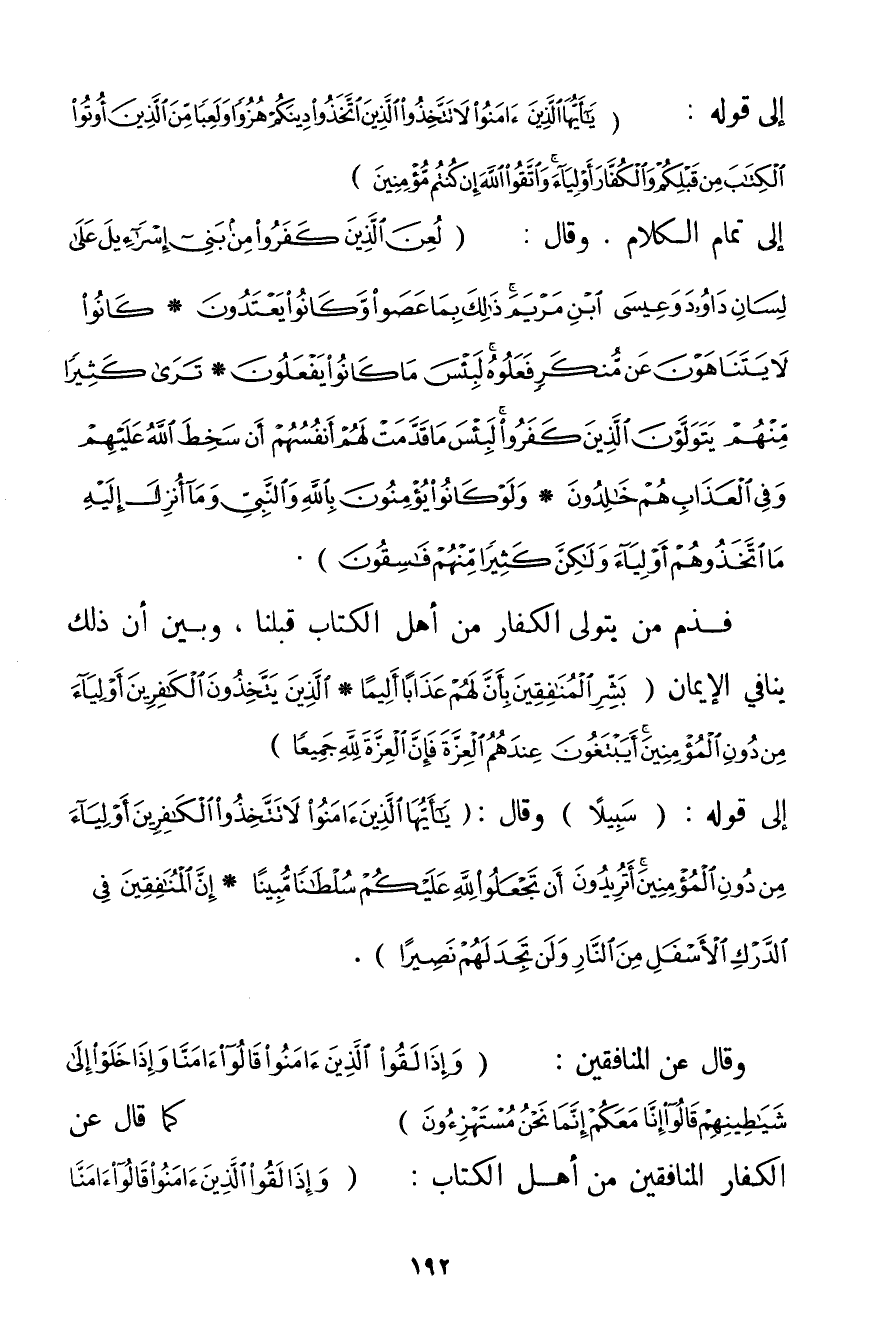 إلى قوله : ( يَٰٓأَيُّهَا ٱلَّذِينَ ءَامَنُوا۟ لَا تَتَّخِذُوا۟ ٱلَّذِينَ ٱتَّخَذُوا۟ دِينَكُمْ هُزُوًا وَلَعِبًا مِّنَ ٱلَّذِينَ أُوتُوا۟
ٱلْكِتَٰبَ مِن قَبْلِكُمْ وَٱلْكُفَّارَ أَوْلِيَآءَ ۚ وَٱتَّقُوا۟ ٱللَّهَ إِن كُنتُم مُّؤْمِنِينَ )
إلى تمام الكلام . وقال : ( لُعِنَ ٱلَّذِينَ كَفَرُوا۟ مِنۢ بَنِىٓ إِسْرَٰٓءِيلَ عَلَىٰ
لِسَانِ دَاوُۥدَ وَعِيسَى ٱبْنِ مَرْيَمَ ۚ ذَٰلِكَ بِمَا عَصَوا۟ وَّكَانُوا۟ يَعْتَدُونَ * كَانُوا۟
لَا يَتَنَاهَوْنَ عَن مُّنكَرٍ فَعَلُوهُ ۚ لَبِئْسَ مَا كَانُوا۟ يَفْعَلُونَ * تَرَىٰ كَثِيرًا
مِّنْهُمْ يَتَوَلَّوْنَ ٱلَّذِينَ كَفَرُوا۟ ۚ لَبِئْسَ مَا قَدَّمَتْ لَهُمْ أَنفُسُهُمْ أَن سَخِطَ ٱللَّهُ عَلَيْهِمْ
وَفِى ٱلْعَذَابِ هُمْ خَٰلِدُونَ * وَلَوْ كَانُوا۟ يُؤْمِنُونَ بِٱللَّهِ وَٱلنَّبِىِّ وَمَآ أُنزِلَ إِلَيْهِ
مَا ٱتَّخَذُوهُمْ أَوْلِيَآءَ وَلَٰكِنَّ كَثِيرًا مِّنْهُمْ فَٰسِقُونَ ) .
فذم من يتولى الكفار من أهل الكتاب قبلنا ، وبين أن ذلك
ينافي الإيمان ( بَشِّرِ ٱلْمُنَٰفِقِينَ بِأَنَّ لَهُمْ عَذَابًا أَلِيمًا * ٱلَّذِينَ يَتَّخِذُونَ ٱلْكَٰفِرِينَ أَوْلِيَآءَ
مِن دُونِ ٱلْمُؤْمِنِينَ ۚ أَيَبْتَغُونَ عِندَهُمُ ٱلْعِزَّةَ فَإِنَّ ٱلْعِزَّةَ لِلَّهِ جَمِيعًا )
إلى قوله : ( سَبِيلًا ) وقال : ( يَٰٓأَيُّهَا ٱلَّذِينَ ءَامَنُوا۟ لَا تَتَّخِذُوا۟ ٱلْكَٰفِرِينَ أَوْلِيَآءَ
مِن دُونِ ٱلْمُؤْمِنِينَ ۚ أَتُرِيدُونَ أَن تَجْعَلُوا۟ لِلَّهِ عَلَيْكُمْ سُلْطَٰنًا مُّبِينًا * إِنَّ ٱلْمُنَٰفِقِينَ فِى
ٱلدَّرْكِ ٱلْأَسْفَلِ مِنَ ٱلنَّارِ وَلَن تَجِدَ لَهُمْ نَصِيرًا ) .
وقال عن المنافقين : ( وَإِذَا لَقُوا۟ ٱلَّذِينَ ءَامَنُوا۟ قَالُوٓا۟ ءَامَنَّا وَإِذَا خَلَوْا۟ إِلَىٰ
شَيَٰطِينِهِمْ قَالُوٓا۟ إِنَّا مَعَكُمْ إِنَّمَا نَحْنُ مُسْتَهْزِءُونَ ) كما قال عن
الكفار المنافقين من أهل الكتاب : ( وَإِذَا لَقُوا۟ ٱلَّذِينَ ءَامَنُوا۟ قَالُوٓا۟ ءَامَنَّا
١٩٢